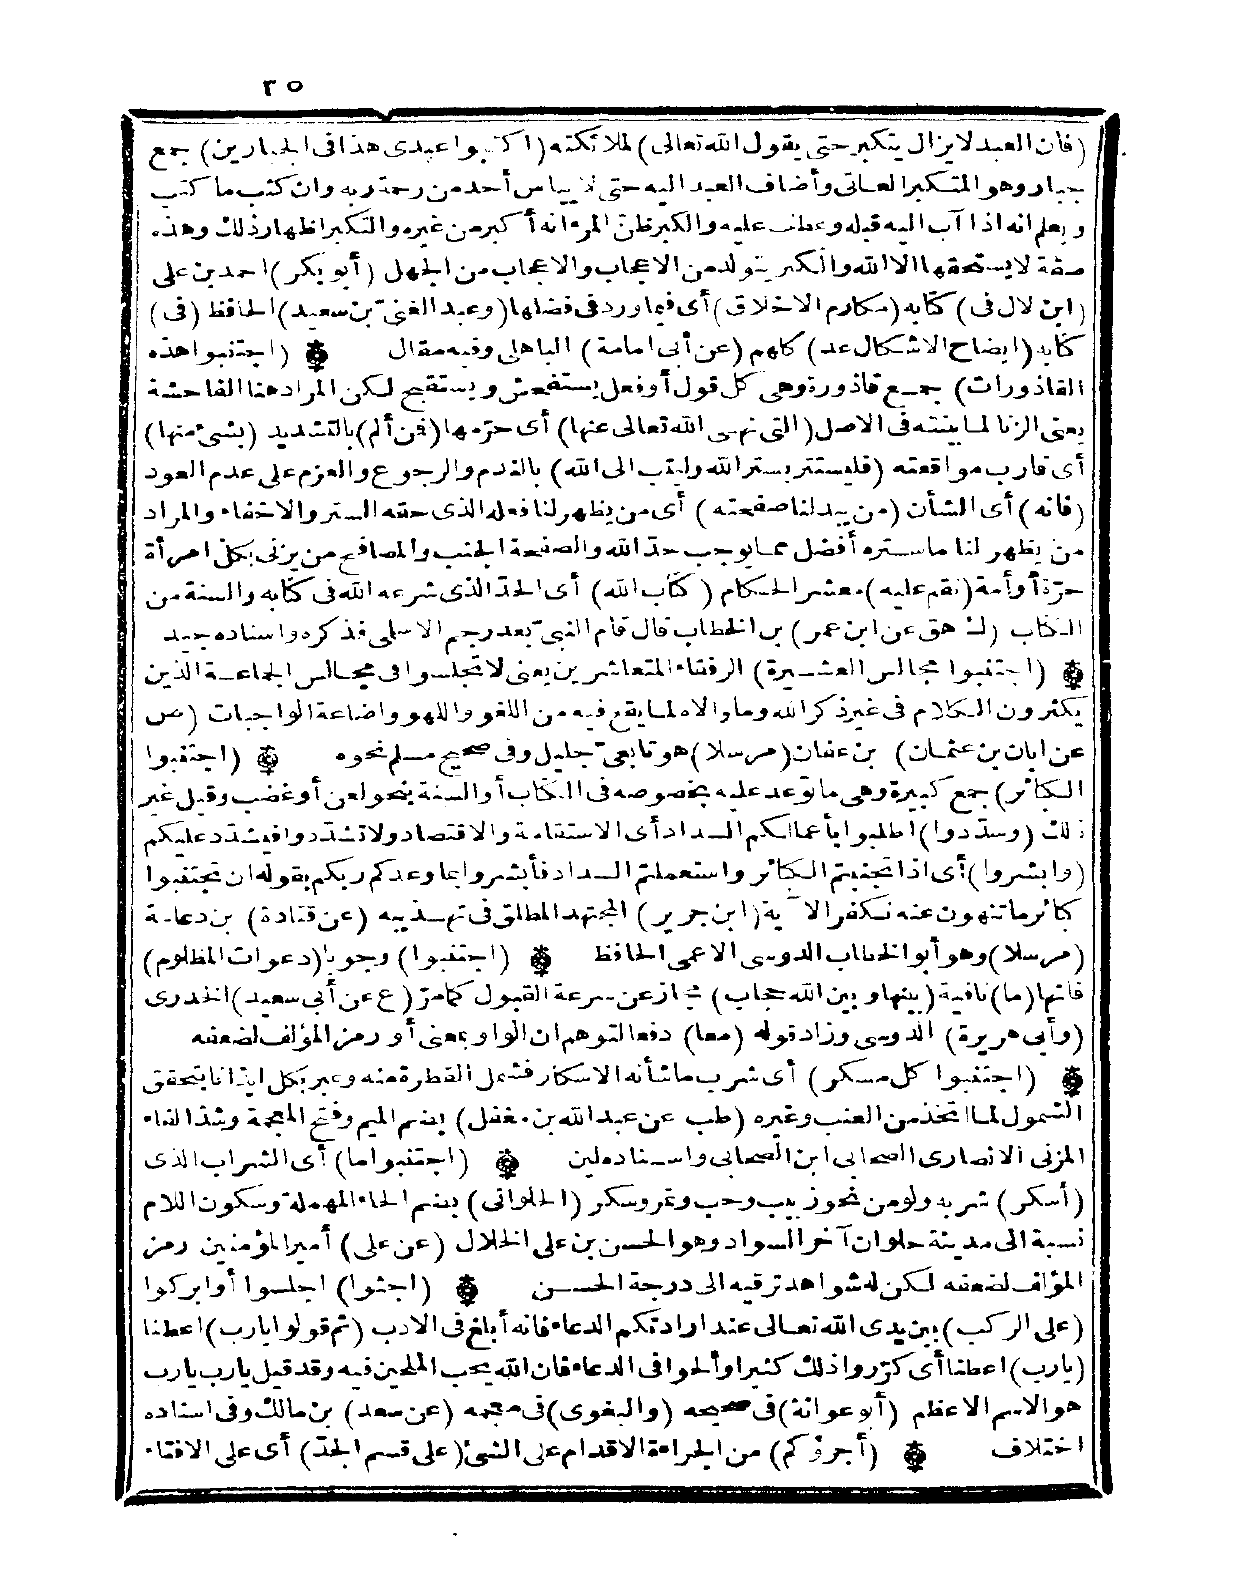 ٣٥
(فان العبد لا يزال يتكبر حتى يقول الله تعالى) لملائكته (اكتبوا عبدى هذا فى الجبارين) جمع
جبار وهو المتكبر العاتى وأضاف العبد اليه حتى لا ييأس أحد من رحمة ربه وان كتب ما كتب
ويعلم انه اذا آب اليه قبله وعطف عليه والكبر ظن المرء انه أكبر من غيره والتكبر اظهار ذلك وهذه
صفة لا يستحقها الا الله والكبر يتولد من الاعجاب والاعجاب من الجهل (أبو بكر) احمد بن على
(ابن لال فى) كتابه (مكارم الاخلاق) أى فيما ورد فى فضلها (وعبد الغنى بن سعيد) الحافظ (فى)
كتابه (ايضاح الاشكال عد) كلهم (عن أبى امامة) الباهلى وفيه مقال (اجتنبوا هذه
القاذورات) جمع قاذورة وهى كل قول أو فعل يستفحش ويستقبح لكن المراد هنا الفاحشة
يعنى الزنا لما بينته فى الاصل (التى نهى الله تعالى عنها) أى حرمها (فن ألم) بالتشديد (بشئ منها)
أى قارب مواقعته (فليستتر بستر الله وليتب الى الله) بالندم والرجوع والعزم على عدم العود
(فانه) أى الشأن (من يبد لنا صفحته) أى من يظهر لنا فعله الذى حقه الستر والاخفاء والمراد
من يظهر لنا ما ستره أفضل مما يوجب حد الله والصفيحة الجنب والمصافح من يزنى بكل امرأة
حرة أو أمة (نقم عليه) معشر الحكام (كتاب الله) أى الحد الذى شرعه الله فى كتابه والسنة من
الكتاب (ك هق عن ابن عمر) بن الخطاب قال قام النبى بعد رجم الاسلمى فذكره واسناده جيد
(اجتنبوا مجالس العشيرة) الرفقاء المتعاشرين يعنى لا تجلسوا فى مجالس الجماعة الذين
يكثرون الكلام فى غير ذكر الله وما والاه لما يقع فيه من اللغو واللهو واضاعة الواجبات (ص
عن ابان بن عثمان) بن عفان (مرسلا) هو تابعى جليل وفى صحيح مسلم نحوه (اجتنبوا
الكبائر) جمع كبيرة وهى ما توعد عليه بخصوصه فى الكتاب أو السنة بنحو لعن أو غضب وقيل غير
ذلك (وسددوا) اطلبوا بأعمالكم السداد أى الاستقامة والاقتصاد ولا تشددوا فيشدد عليكم
(وابشروا) أى اذا تجنبتم الكبائر واستعملتم السداد فأبشروا بما وعدكم ربكم بقوله ان تجتنبوا
كبائر ما تنهون عنه نكفر الآية (ابن جرير) المجتهد المطلق فى تهذيبه (عن قتادة) بن دعامة
(مرسلا) وهو أبو الخطاب الدوسى الاعمى الحافظ (اجتنبوا) وجوبا (دعوات المظلوم)
فانها (ما) نافية (بينها وبين الله حجاب) مجاز عن سرعة القبول كمامر (ع عن أبى سعيد) الخدرى
(وأبى هريرة) الدوسى وزاد قوله (معا) دفعا لتوهم ان الواو بمعنى أو رمز المؤلف لضعفه
(اجتنبوا كل مسكر) أى شرب ما شأنه الاسكار فشمل القطرة منه وعبر بكل ايذانا بتحقق
الشمول لما اتخذ من العنب وغيره (طب عن عبد الله بن مغفل) بضم الميم وفتح المعجمة وشد الفاء
المزنى الانصارى الصحابى ابن الصحابى واسناده لين (اجتنبوا ما) أى الشراب الذى
(أسكر) شربه ولو من نحو زبيب وحب وتمر وسكر (الحلوانى) بضم الحاء المهملة وسكون اللام
نسبة الى مدينة حلوان آخر السواد وهو الحسن بن على الخلال (عن على) أمير المؤمنين رمز
المؤلف لضعفه لكن له شواهد ترقيه الى درجة الحسن (اجثوا) اجلسوا أو ابركوا
(على الركب) بين يدى الله تعالى عند ارادتكم الدعاء فانه أبلغ فى الادب (ثم قولوا يا رب) اعطنا
(يا رب) اعطنا أى كرروا ذلك كثيرا وألحوا فى الدعاء فان الله يحب الملحين فيه وقد قيل يا رب يا رب
هو الاسم الاعظم (أبو عوانة) فى صحيحه (والبغوى) فى معجمه (عن سعد) بن مالك وفى اسناده
اختلاف (أجرؤكم) من الجراءة الاقدام على الشئ (على قسم الجد) أى على الافتاء